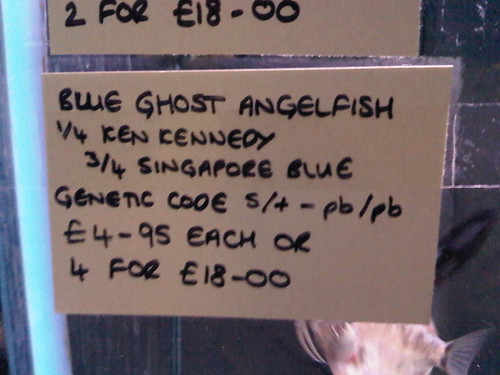 2 FOR £18-00
BLUE GHOST ANGELFISH
1/4 KEN KENNEDY
3/4 SINGAPORE BLUE
GENETIC CODE S/+ - pb/pb
£4-95 EACH OR
4 FOR £18-00